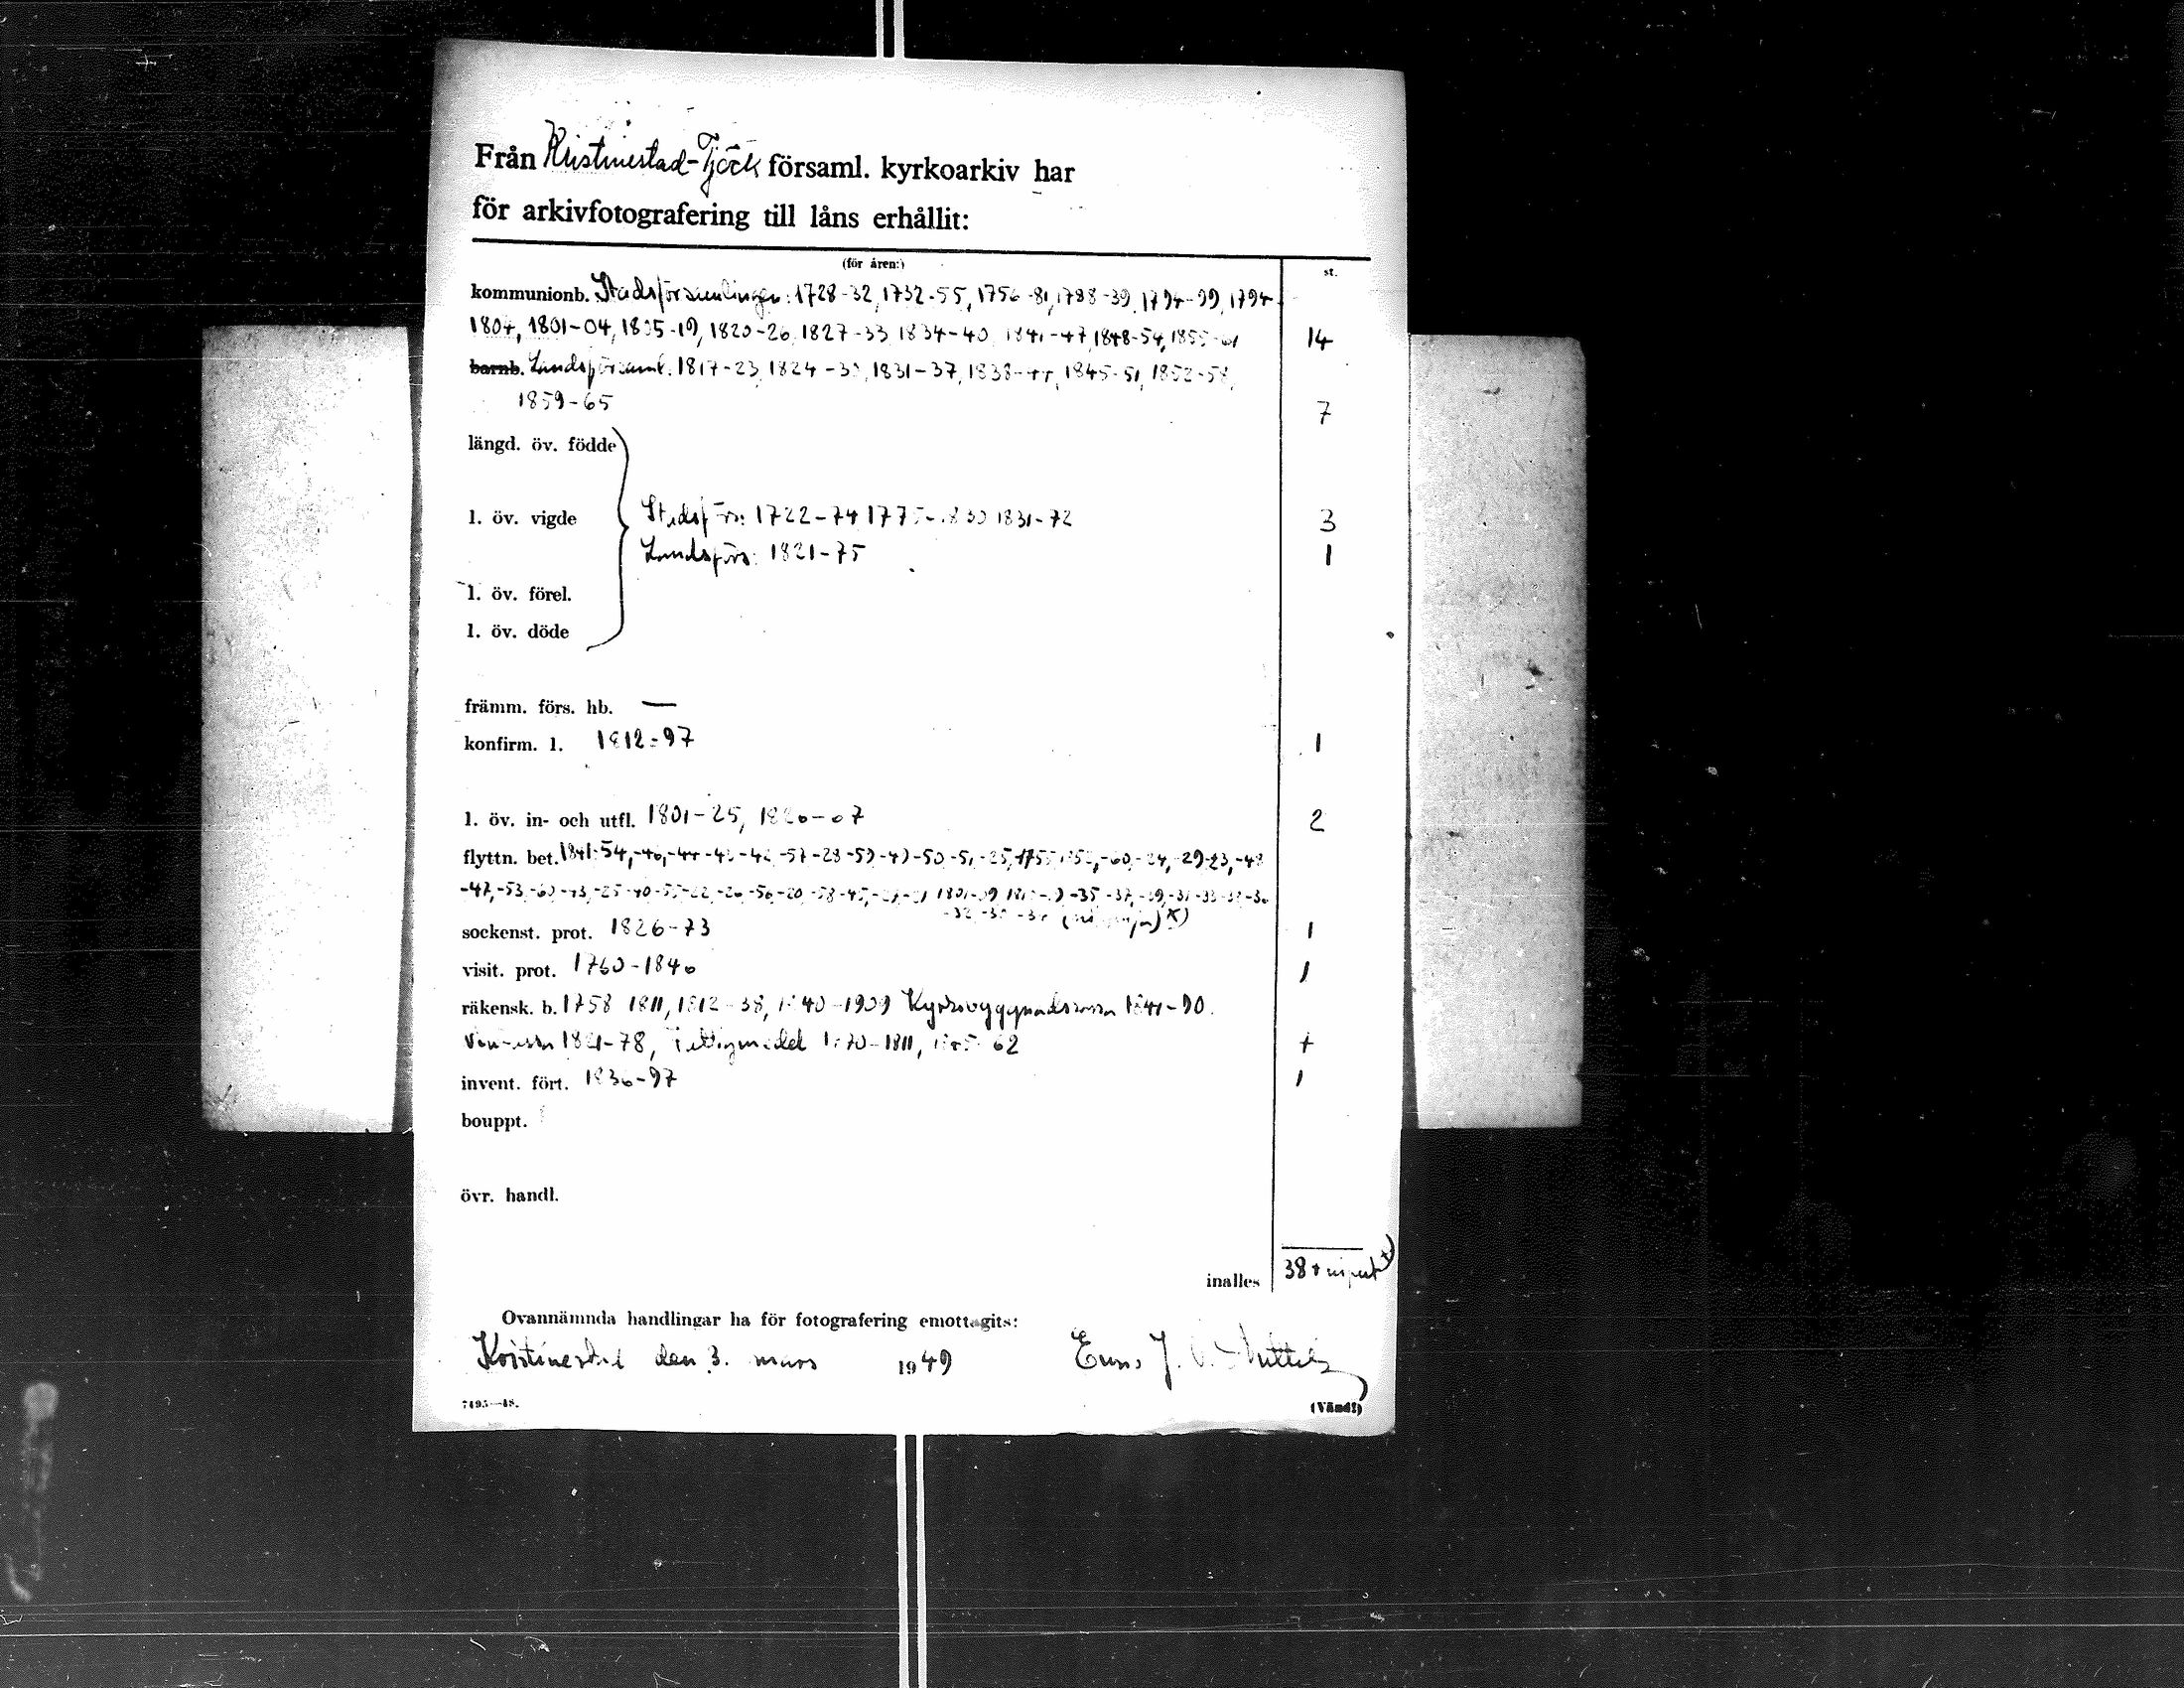 Från Kristinestad-Tjöck församl. kyrkoarkiv har
för arkivfotografering till låns erhållit:
(för åren:) st.
kommunionb. Stadsförsamlingen: 1728-32, 1732-55, 1756-81, 1788-39, 1794-99, 1794-
1804, 1801-04, 1805-19, 1820-26, 1827-33 1834-40 1841-47, 1848-54, 1855-61 14
barnb. Landsförsaml. 1817-23, 1824-30, 1831-37, 1838-44, 1845-51, 1852-58,
1859-65 7
längd. öv. födde
l. öv. vigde Stadsförs: 1722-74 1775-1830 1831-72 3
Landsförs: 1821-75 1
l. öv. förel.
l. öv. döde
främm. förs. hb. —
konfirm. l. 1812-97 1
l. öv. in- och utfl. 1801-25, 2
flyttn. bet. 1841-54, -46, -44 -43 -42 -57 -28 -59 -49 -50 -51 -25, -60, -24, -29 -23, -48
-47, -53, -60 -43, -25 -40 -55 -22, -26 -56 -20, -58 -45, -35 -37, -39, -31 -33
sockenst. prot. 1826-73 1
visit. prot. 1760-1840 1
räkensk. b. 1758 1811, 1812-38, 1840-1909 Kyrkobyggnadskassa 1841-90.
1821-78, 1811, 62 4
invent. fört. 1836-97 1
bouppt.
övr. handl.
inalles 38 +
Ovannämnda handlingar ha för fotografering emottagits:
Kristinestad den 3. mars 1949
7495—48. (Vänd!)